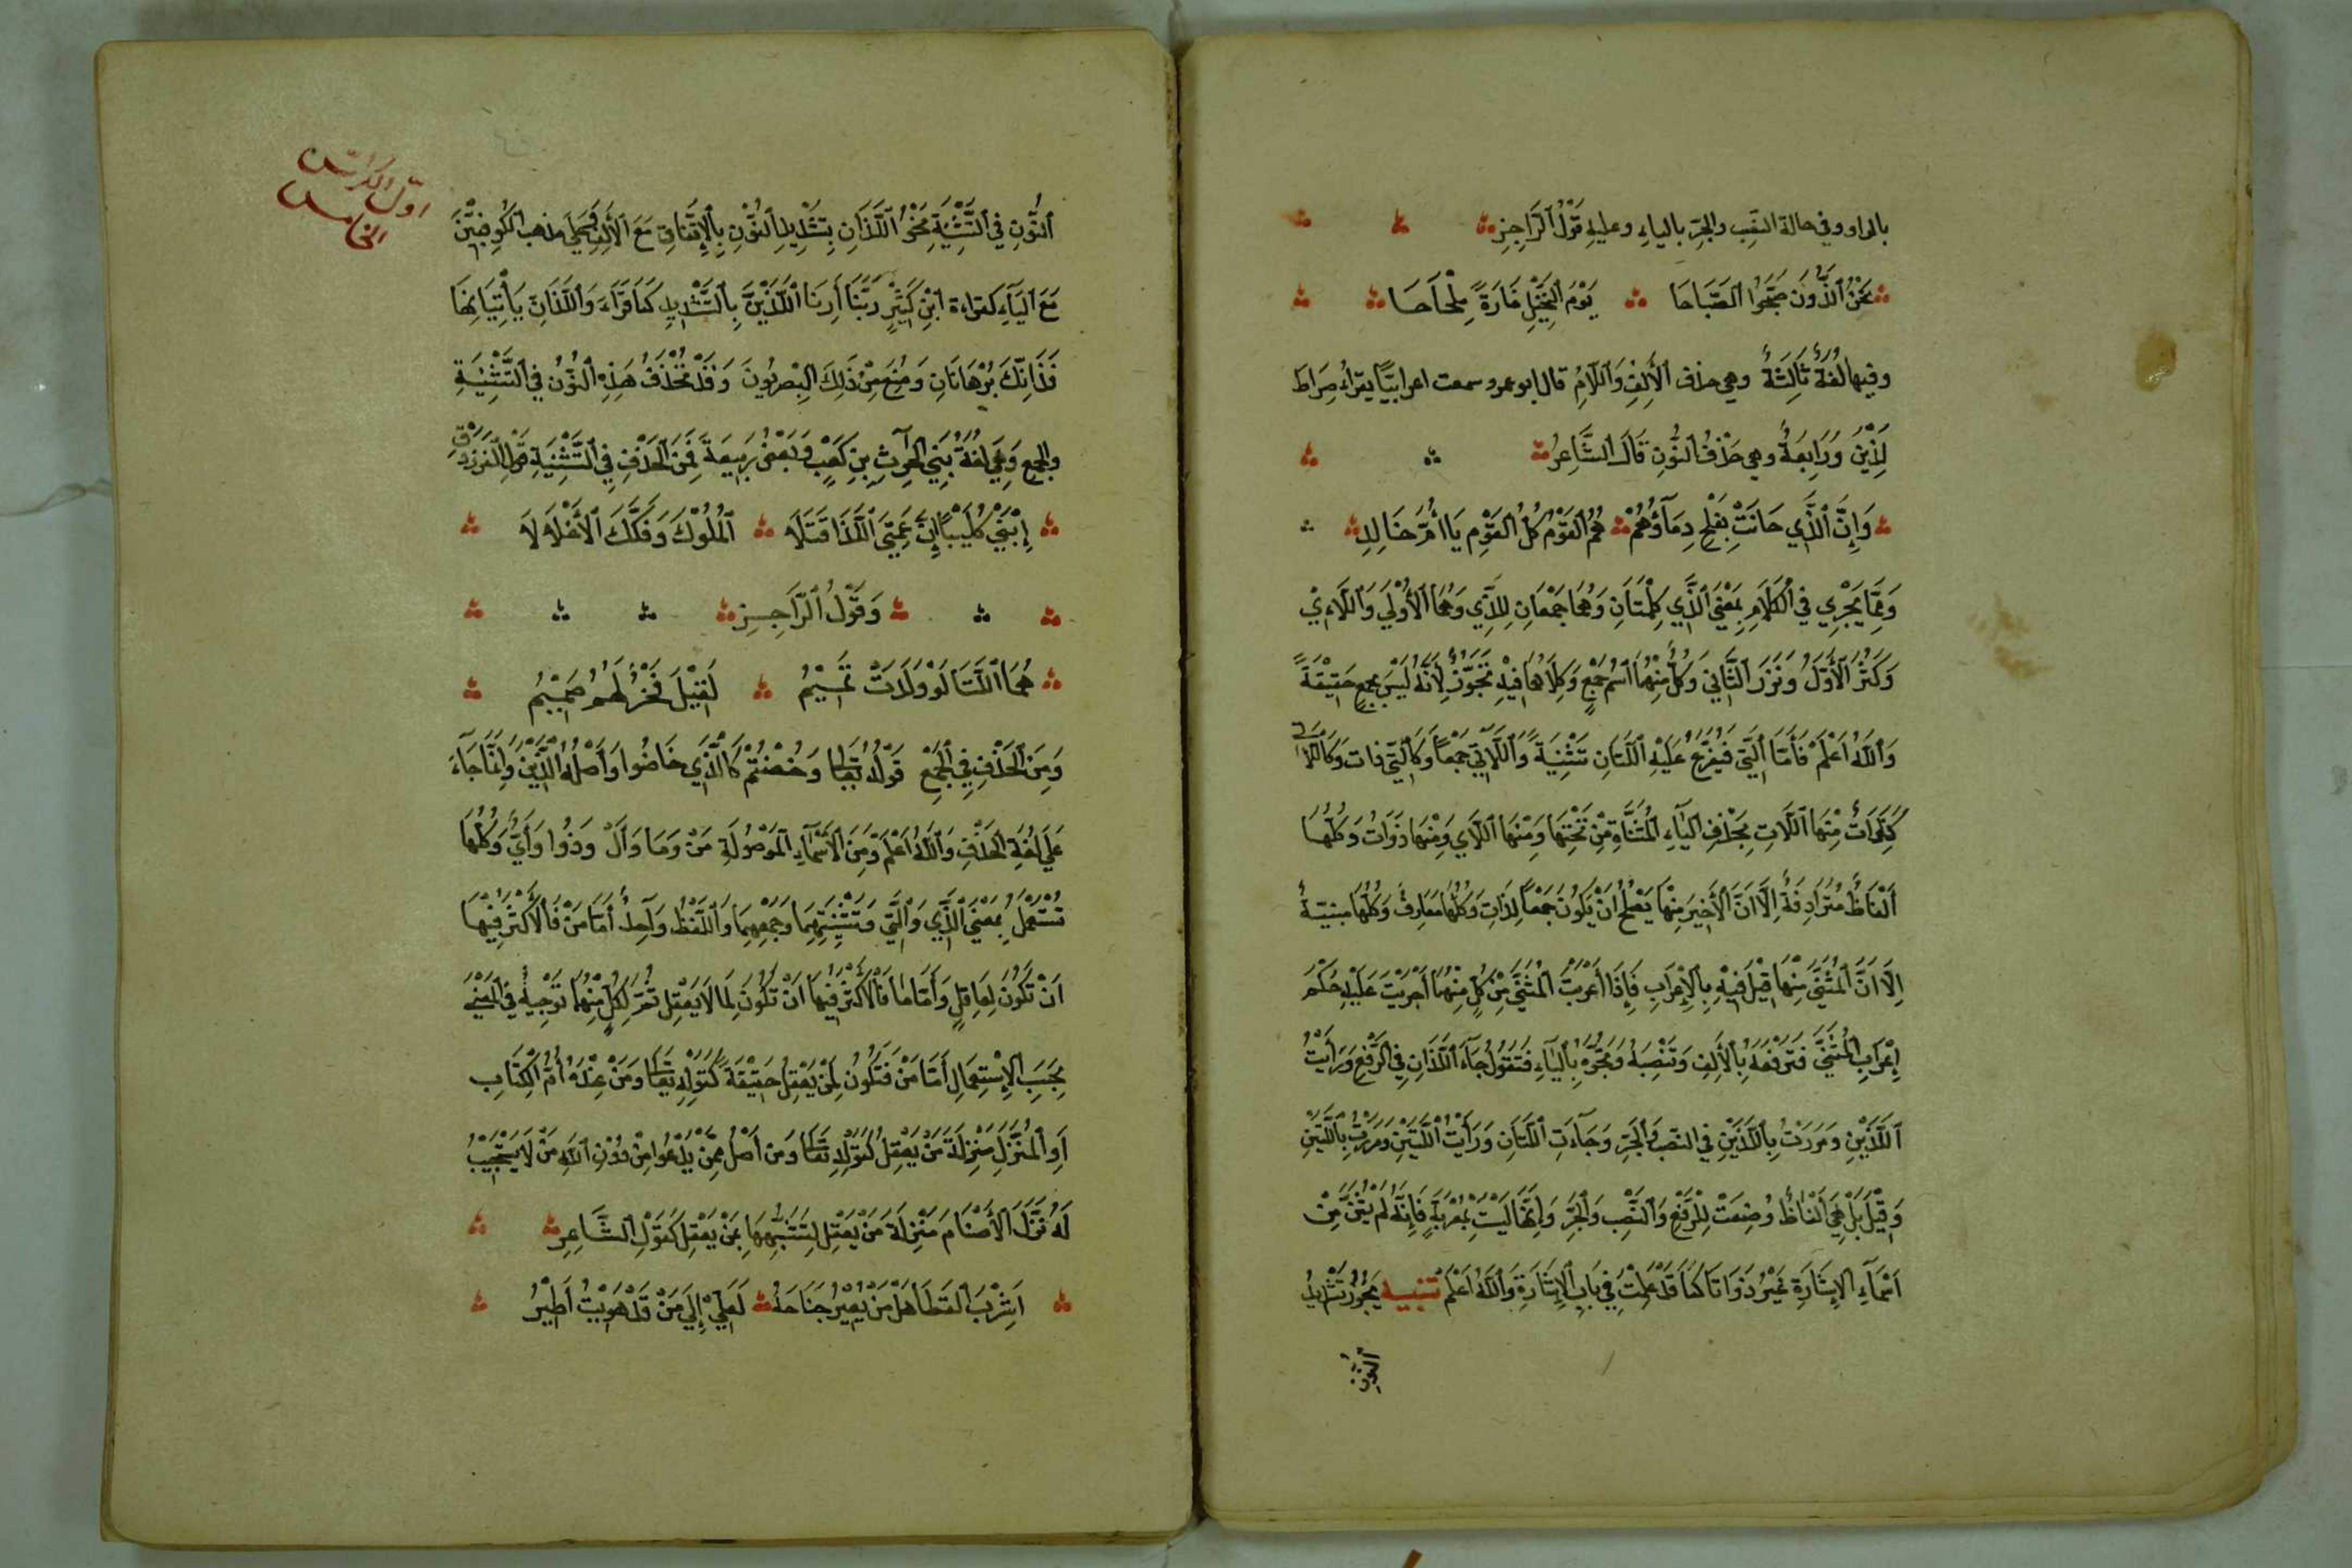 بالواو وفي حالة النصب والجر بالياء وعليه قَوْلُ الرَّاجِزِ
نَحْنُ الَّذُونَ صَبَّحُوا الصَّبَاحَا يَوْمَ النُّخَيْلِ غَارَةً مِلْحَاحَا
وفيها لُغَةٌ ثَالِثَةٌ وهي حذف الأَلِفِ وَاللَّامِ قال ابو عمرو سمعت اعرابيًّا يقراُ صِرَاط
لَذِيْنَ وَرَابِعَةٌ وهي حَذْفُ النُّونِ قَالَ الشَّاعِرُ
وَإِنَّ الَّذِي حَانَتْ بِفَلْجٍ دِمَآؤُهُمْ هُمُ القَوْمُ كُلُّ القَوْمِ يَا أُمَّ خَالِدِ
وَمِمَّا يَجْرِي فِي الْكَلَامِ بِمَعْنَى الَّذِي كَلِمْتَانِ وَهُمَا جَمْعَانِ لِلَّذِي وَهُمَا الأُوْلَي وَاللَّاءِيْ
وَكَثُرَ الأَوَّلُ وَنَزَرَ الثَّانِي وَكُلٌّ مِنْهُمَا اسْمُ جَمْعٍ وَكِلَاهُمَا فِيْهِ تَجَوُّزٌ لِأَنَّهُ لَيْسَ بجمعٍ حَقِيْقَةً
وَاللهُ اَعْلَمُ فَأَمَّا الَّتِي فَيُفَرَّعُ عَلَيْهِ اللَّتَانِ تَثْنِيَةً وَاللَّاتِي جَمْعًا وَكَالَّتِي ذات وَكَاللاتي
ذَوَاتُ مِنْهَا اللَّاتِ بِحَذْفِ اليَاءِ المُثَنَّاةِ مِنْ تَحْتِهَا وَمِنْهَا اللَّاي وَمِنْهَا ذَوَاتُ وَكُلُّهَا
اَلْفَاظٌ مُتَرَادِفَةٌ إِلَّا انَّ الأَخِيرَ مِنْهَا يَصْلُحُ انْ يَكُونَ جَمْعًا لِذَاتِ وَكُلُّهَا مَعَارِفُ وَكُلُّهَا مبنيّةٌ
اِلَّا انَّ المُثَنَّى مِنْهَا قِيْلَ فِيْهِ بِالإِعْرَابِ فَإِذَا أَعْرَبْتَ المُثَنَّى مِنْ كُلٍّ مِنْهُمَا اَجْرَيْتَ عَلَيْهِ حُكْمَ
إِعْرَابِ المُثَنَّى فَتَرْفَعُهُ بِالأَلِفِ وَتَنْصِبُهُ وَتَجُرُّهُ بِاليَاءِ فَتَقُولُ جَآءَ اللَّذَانِ فِي الرَّفْعِ وَرَأَيْتُ
اَللَّذَيْنِ وَمَرَرْتُ بِاللَّذَيْنِ في النصب وَالْجَرِّ وَجَآءَتِ اللَّتَانِ وَرَأَيْتُ اللَّتَيْنِ وَمَرَرْتُ بِاللَّتَيْنِ
وَقِيْلَ بَلْ هِيَ اَلْفَاظٌ وُضِعَتْ لِلرَّفْعِ وَالنَّصْبِ وَالْجَرِّ وَاِنَّهَا لَيْسَتْ بِمُعْرَبَةٍ فَإِنَّهُ لَمْ يُثَنَّ مِنْ
اَسْمَآءِ الإِشَارَةِ غَيْرُ ذَا وَتَا كَمَا قَدْ عَلِمْتَ فِي بَابِ الإِشَارَةِ وَاللهُ اَعْلَمُ تنبيه يَجُوزُ تَشْدِيدُ
النُّونِ
اول الكراس
الخامس
اَلنُّونِ فِي التَّثْنِيَةِ نَحْوُ اَللَّذَانِّ بِتَشْدِيدِ النُّوْنِ بِالإِتِّفَاقِ مَعَ الأَلِفِ وَعَلَى مذهب الكُوفِيِّيْنَ
مَعَ اليَآءِ كقراءة ابْنِ كَثِيْرٍ رَبَّنَا أَرِنَا اللَّذَيْنِّ بِالتَّشْدِيدِ كَمَا قَرَأَ وَاللَّذَانِّ يَأْتِيَانِهَا
فَذَانِّكَ بُرْهَانَانِ وَمُنِعَ مِنْ ذَلِكَ البِصرِيُونَ وَقَدْ تُحْذَفُ هَذِهِ النُّوْنُ فِي التَّثْنِيَةِ
والجمع وَهِيَ لُغَةُ بَنِي الْحَرِثِ بِنِ كَعْبٍ وَبَعْضُ رَبِيعَةَ فَمِنَ الحَذْفِ فِي التَّثْنِيَةِ قولُ الفَرَزدَقِ
اِبْنَيْ كُلَيْبٍ إِنَّ عَمَّيَّ اللَّذَا قَتَلَا اَلْمُلُوْكَ وَفَكَّكَ الأَغْلَالَا
وَقَوْلُ الرَّاجِزِ
هُمَا اللَّتَا لَوْ وَلَدَتْ تَمِيْمُ لَقِيْلَ فَخْرٌ لَهُمُ صَمِيْمُ
وَمِنَ الحَذْفِ فِي الْجَمْعِ قَوْلُهُ تعَالى وَخُضْتُمْ كَالَّذِي خَاضُوا وَأَصْلُهُ الَّذِيْنَ وَإِنَّمَا جَآءَ
عَلَى لُغَةِ الحَذْفِ وَاللهُ اَعْلَمُ وَمِنَ الأَسْمَآءِ المَوْصُولَةِ مَنْ وَمَا وَأَلْ وَذُوا وَأَيُّ وَكُلُّهَا
تُسْتَعْمَلُ بِمَعْنَى الَّذِي وَالَّتِي وَتَثْنِيَتِهِمَا وَجَمْعِهِمَا وَاللَّفْظُ وَاحِدٌ أَمَّا مَنْ فَالأَكْثَرُ فِيْهَا
اَنْ تَكُونَ لِعَاقِلٍ وَأَمَّا مَا فَالأَكْثَرُ فِيْهَا اَنْ تَكُونَ لِمَا لَا يَعْقِلُ ثُمَّ لِكُلٍّ مِنْهُمَا تَوْجِيهٌ فِي المَعْنَى
بِحَسَبِ الإِسْتِعْمَالِ أَمَّا مَنْ فَتَكُونُ لِمَنْ يَعْقِلُ حَقِيْقَةً كَقَوْلِهِ تعَالى وَمَنْ عِنْدَهُ أُمُّ الْكِتَابِ
اَوِ المُنَزَّلِ مَنْزِلَةَ مَنْ يَعْقِلُ كَقَوْلِهِ تعَالى ومَن اَضَلُّ مِمَّنْ يَدْعُوا مِنْ دُوْنِ اللهِ مَنْ لَا يَسْتَجِيْبُ
لَهُ نَزَّلَ الأَصْنَامَ مَنْزِلَةَ مَنْ يَعْقِلُ لِتَشَبُّهِهَا بِمَنْ يَعْقِلُ كَقَوْلِ الشَّاعِرِ
اَسِرْبَ القَطَا هَلْ مَنْ يُعِيْرُ جَنَاحَهُ لَعَلِّيْ إِلَى مَنْ قَدْ هَوِيْتُ اَطِيْرُ